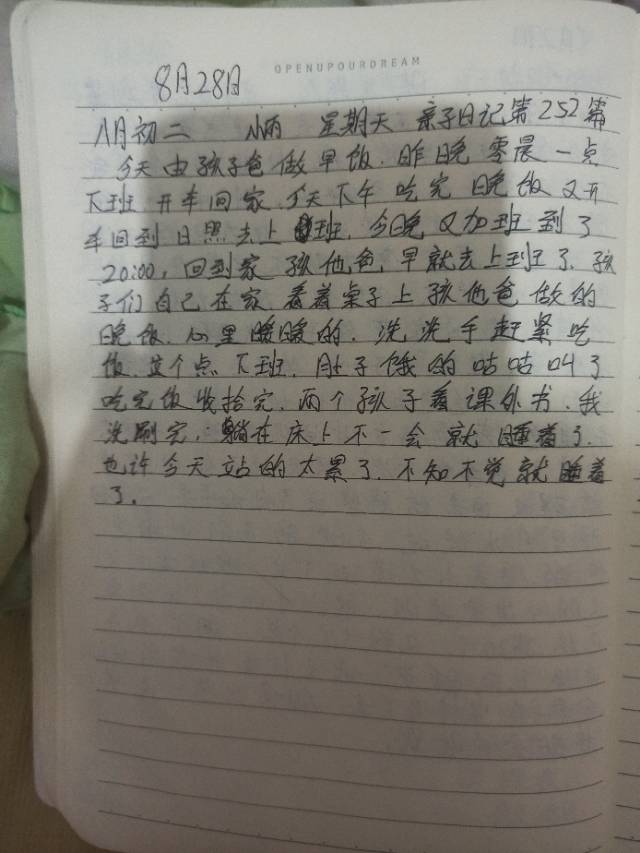 OPENUPOURDREAM
8月28日
八月初二 小雨 星期天 亲子日记第252篇
今天由孩子爸做早饭.昨晚零晨一点
下班开车回家.今天下午吃完晚饭又开
车回到日照去上班.今晚又加班到了
20:00,回到家孩他爸,早就去上班了.孩
子们自己在家.看着桌子上孩他爸做的
晚饭.心里暖暖的.洗洗手赶紧吃
饭.这个点下班.肚子饿的咕咕叫了
吃完饭收拾完.两个孩子看课外书.我
洗刷完,躺在床上不一会就睡着了.
也许今天站的太累了.不知不觉就睡着
了.